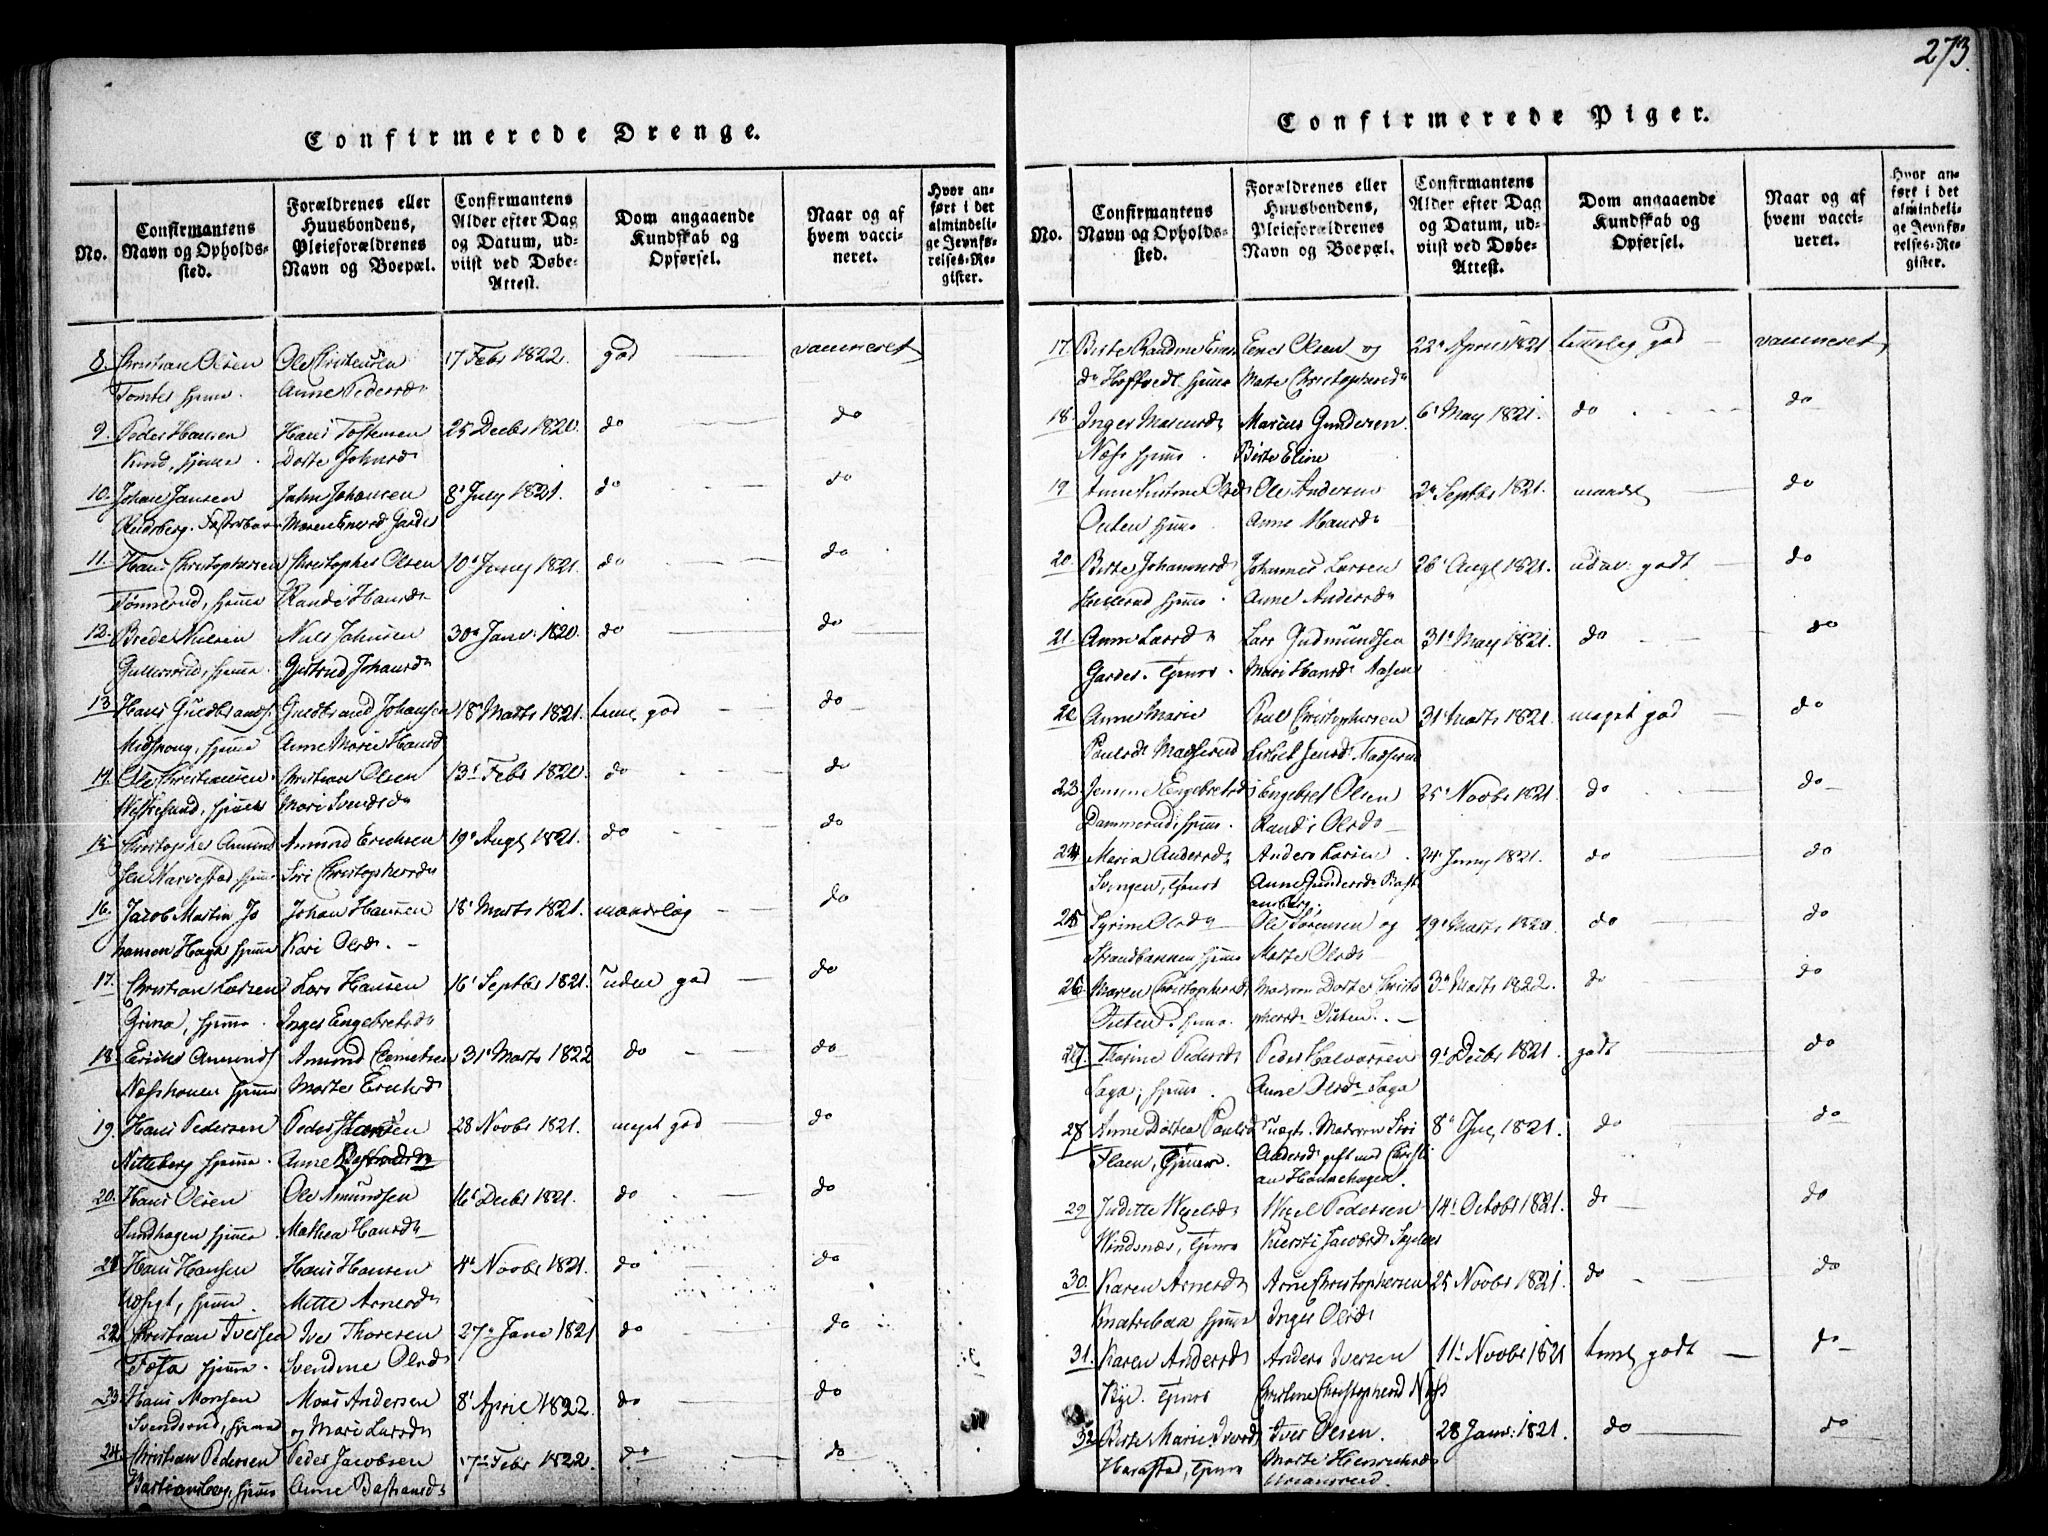 273.
Confirmerede Drenge.
No.
Confirmantens Navn og Opholdssted.
Forældrenes eller Huusbondens, Pleieforældrenes Navn og Boepæl.
Confirmantens Alder efter Dag og Datum, udviist ved Døbe-Attest.
Dom angaaende Kundskab og Opførsel.
Naar og af hvem vaccineret.
Hvor anført i det almindelige Jevnførelses-Register.
8. Christian Olsen Ole Christensen 17 Febr 1822. god vaccineret
hjemme. Anne Pedersd.
9. Peder Hansen Hans 25 Decbr 1820. do do
hjemme Dorte Johnsd.
10. Johan Jansen Jahn Johansen 8' July 1821. do do
Maren
11. Hans Christophersen Christopher Olsen 10' Juny 1821. do do
Tømmerud, hjemme Randi Hansd.
12. Brede Nielsen Niels Johnsen 30' Janv: 1820. do do
hjemme. Gjertrud Johansd.
13 Hans Guldbrands. Guldbrand Johansen 18' Marts 1821. god do
hjemme Anne Marie Hansd
14. Ole Christiansen Christian Olsen 13' Febr 1820. do do
hjemme Mari Svendsd.
15. Christopher Amund Amund Erichsen 19' Augt 1821. do do
sen Narvestad, hjemme Siri Christophersd.
16. Jacob Martin Jo Johan Hansen 18' Marts 1821. do
hansen Haga hjemme Kari Olsd.
17. Christian Larsen Lars Hansen 16' Septbr 1821. god do
hjemme. Inger Engebretsd.
18. Erich Amunds. Amund Clemetsen 31' Marts 1822 do do
hjemme Marte Erichsd.
19. Hans Pedersen Peder Hansen 28 Novbr 1821. meget god do
Nitteberg hjemme. Anne
20. Hans Olsen Ole Amundsen 16' Decbr 1821. do do
Sundhagen hjemme. Mathea Hansd.
21 Hans Hansen Hans Hansen 4' Novbr 1821. do do
hjemme. Mette Arnesd.
22. Christian Iversen Iver Thoresen 27' Janv 1821 do do
hjemme. Olsd.
23. Hans Monsen Mons Andersen 8' April 1822. do do
Svendsrud, hjemme og Mari Larsd.
24. Christian Pedersen Peder Jacobsen 17' Febr 1822. do do
Bastiansberg, hjemme Anne Bastiansd.
Confirmerede Piger.
No.
Confirmantens Navn og Opholdssted.
Forældrenes eller Huusbondens, Pleieforældrenes Navn og Boepæl.
Confirmantens Alder efter Dag og Datum, udviist ved Døbe-Attest.
Dom angaaende Kundskab og Opførsel.
Naar og af hvem vaccineret.
Hvor anført i det almindelige Jevnførelses-Register.
17. Berte Randine Ener Ener Olsen og 22' April 1821 god vaccineret
hjemme Marte Christophersd.
18. Inger Marcusd. Marcus Gundersen 6' May 1821. do do
Næss hjemme. Berte Eline
19 Anne Kirstine Olsd. Ole Andersen 2' Septbr 1821. do
hjemme. Anne Hansd.
20. Berte Johannesd Johannes Larsen 26' Augt 1821. udm. godt do
hjemme. Anne Andersd.
21. Anne Larsd. Lars Gudmundsen 31' May 1821. do do
Garder. tjener. Mari Hansd. Aasen
22 Anne Marie Poul Christophersen 31' Marts 1821. meget god do
Paulsd. Jensd.
23. Engebretsd. Engebret Olsen 25' Novbr 1821 do do
Dammerud, hjemme. Randi Olsd.
24 Maria Andersd. Anders Larsen 24' Juny 1821. do do
Svengen, tjener Anne Gundersd.
25 Syrine Olsd. Ole Sørensen og 19' Marts 1820 do do
Strandbakken hjemme Marte Olsd.
26 Maren Christophersd. Dorte Christo 3' Marts 1822. do do
hjemme. phersd.
27 Pedersd. Peder Halvorsen 9' Decbr 1821. godt do
Saga, hjemme. Anne Olsd. Saga
28 Anne Dortea Paulsd Siri 8' July 1821. do do
Flaen, tjener. Andersd. gift med Christi
an Hannehagen.
29 Judette Wegelsd. Wegel Pedersen 14' Octobr 1821. do do
Windsnæs, tjener Kiersti Jacobsd.
30. Karen Arnesd. Arne Christophersen 25 Novbr 1821. do do
hjemme Inger Olsd.
31. Karen Andersd. Anders Iversen 11' Novbr 1821 godt do
Bye. tjener Christophersd Næss
32 Berte Marie Iversd. Iver Olsen. 28 Janv: 1821. do do
Harastad, tjener Marte Henrichsd.